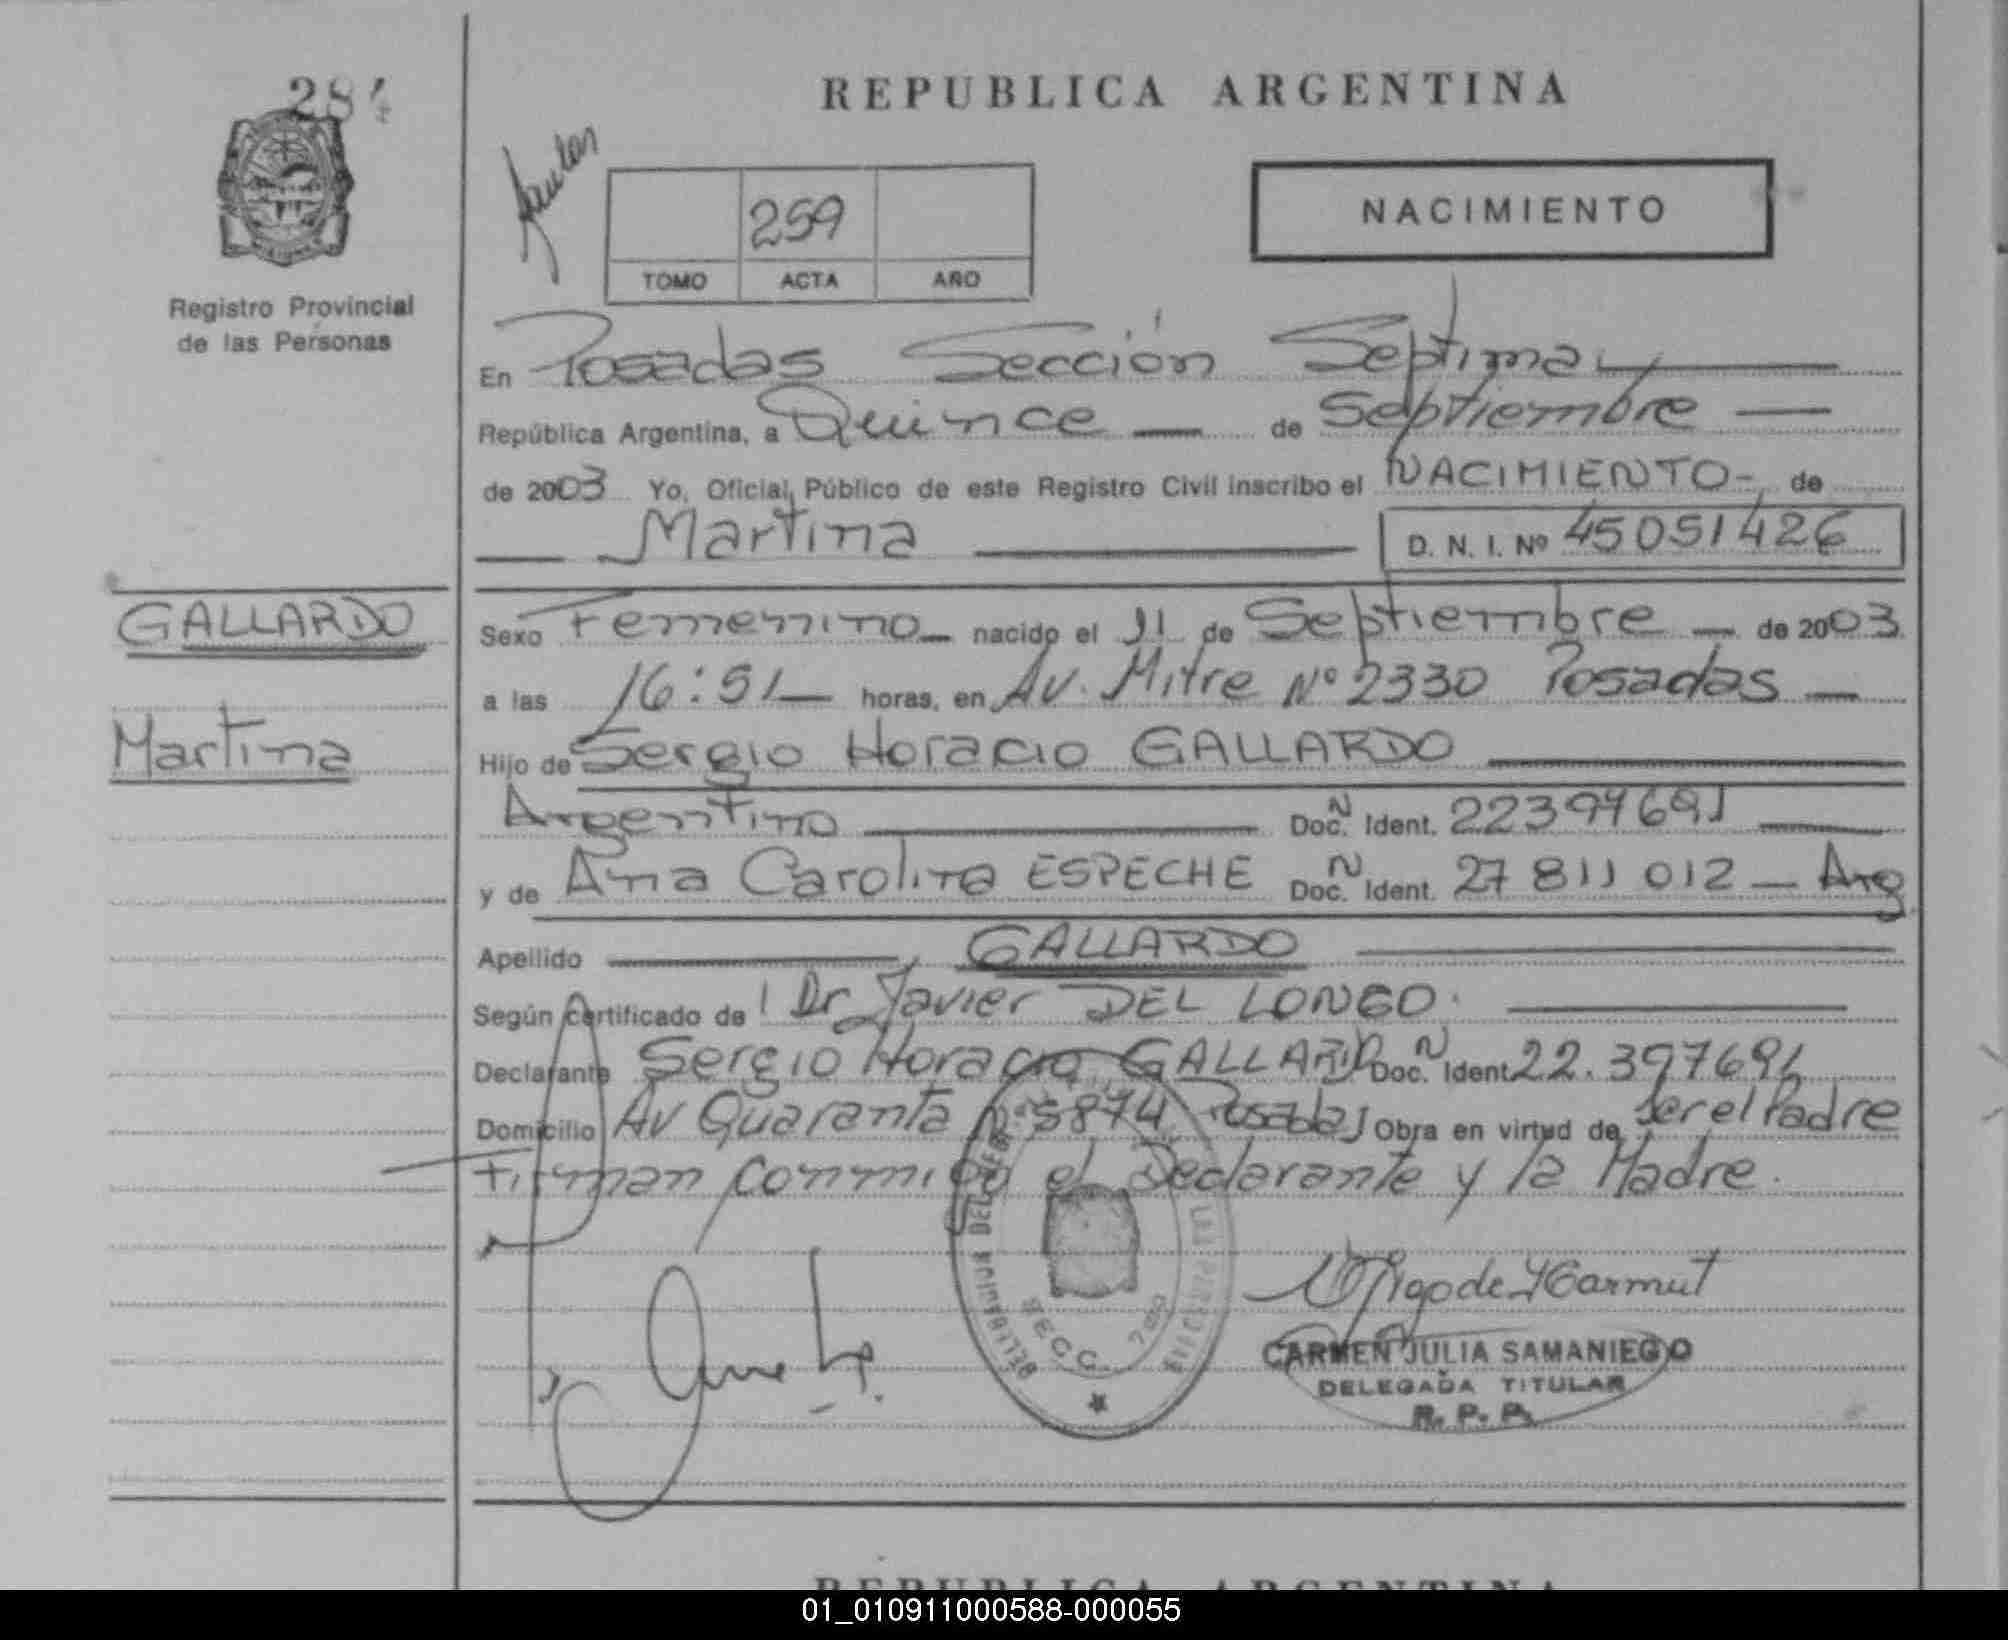 REPUBLICA ARGENTINA
Registro Provincial
de las Personas
259
TOMO ACTA AÑO
NACIMIENTO
En Posadas Sección Septima
República Argentina, a Quince de Septiembre
de 2003 Yo, Oficial Público de este Registro Civil inscribo el NACIMIENTO- de
Martina D. N. I. Nº 45051426
GALLARDO
Martina
Sexo Femenino nacido el 11 de Septiembre de 2003
a las 16:51 horas, en Av. Mitre Nº 2330 Posadas
Hijo de Sergio Horacio GALLARDO
Argentino Doc. N Ident. 22397691
y de Ana Carolina ESPECHE Doc. N Ident. 27 811 012 Arg
Apellido GALLARDO
Según certificado de Dr Javier DEL LONGO.
Declarante Sergio Horacio GALLARDO Doc. N Ident 22.397691
Domicilio Av Quaranta Nº 5874 Posadas Obra en virtud de ser el Padre
Firman conmigo el Declarante y la Madre.
SECC. 7
CARMEN JULIA SAMANIEGO
DELEGADA TITULAR
R. P. P.
REPUBLICA ARGENTINA
01_010911000588-000055